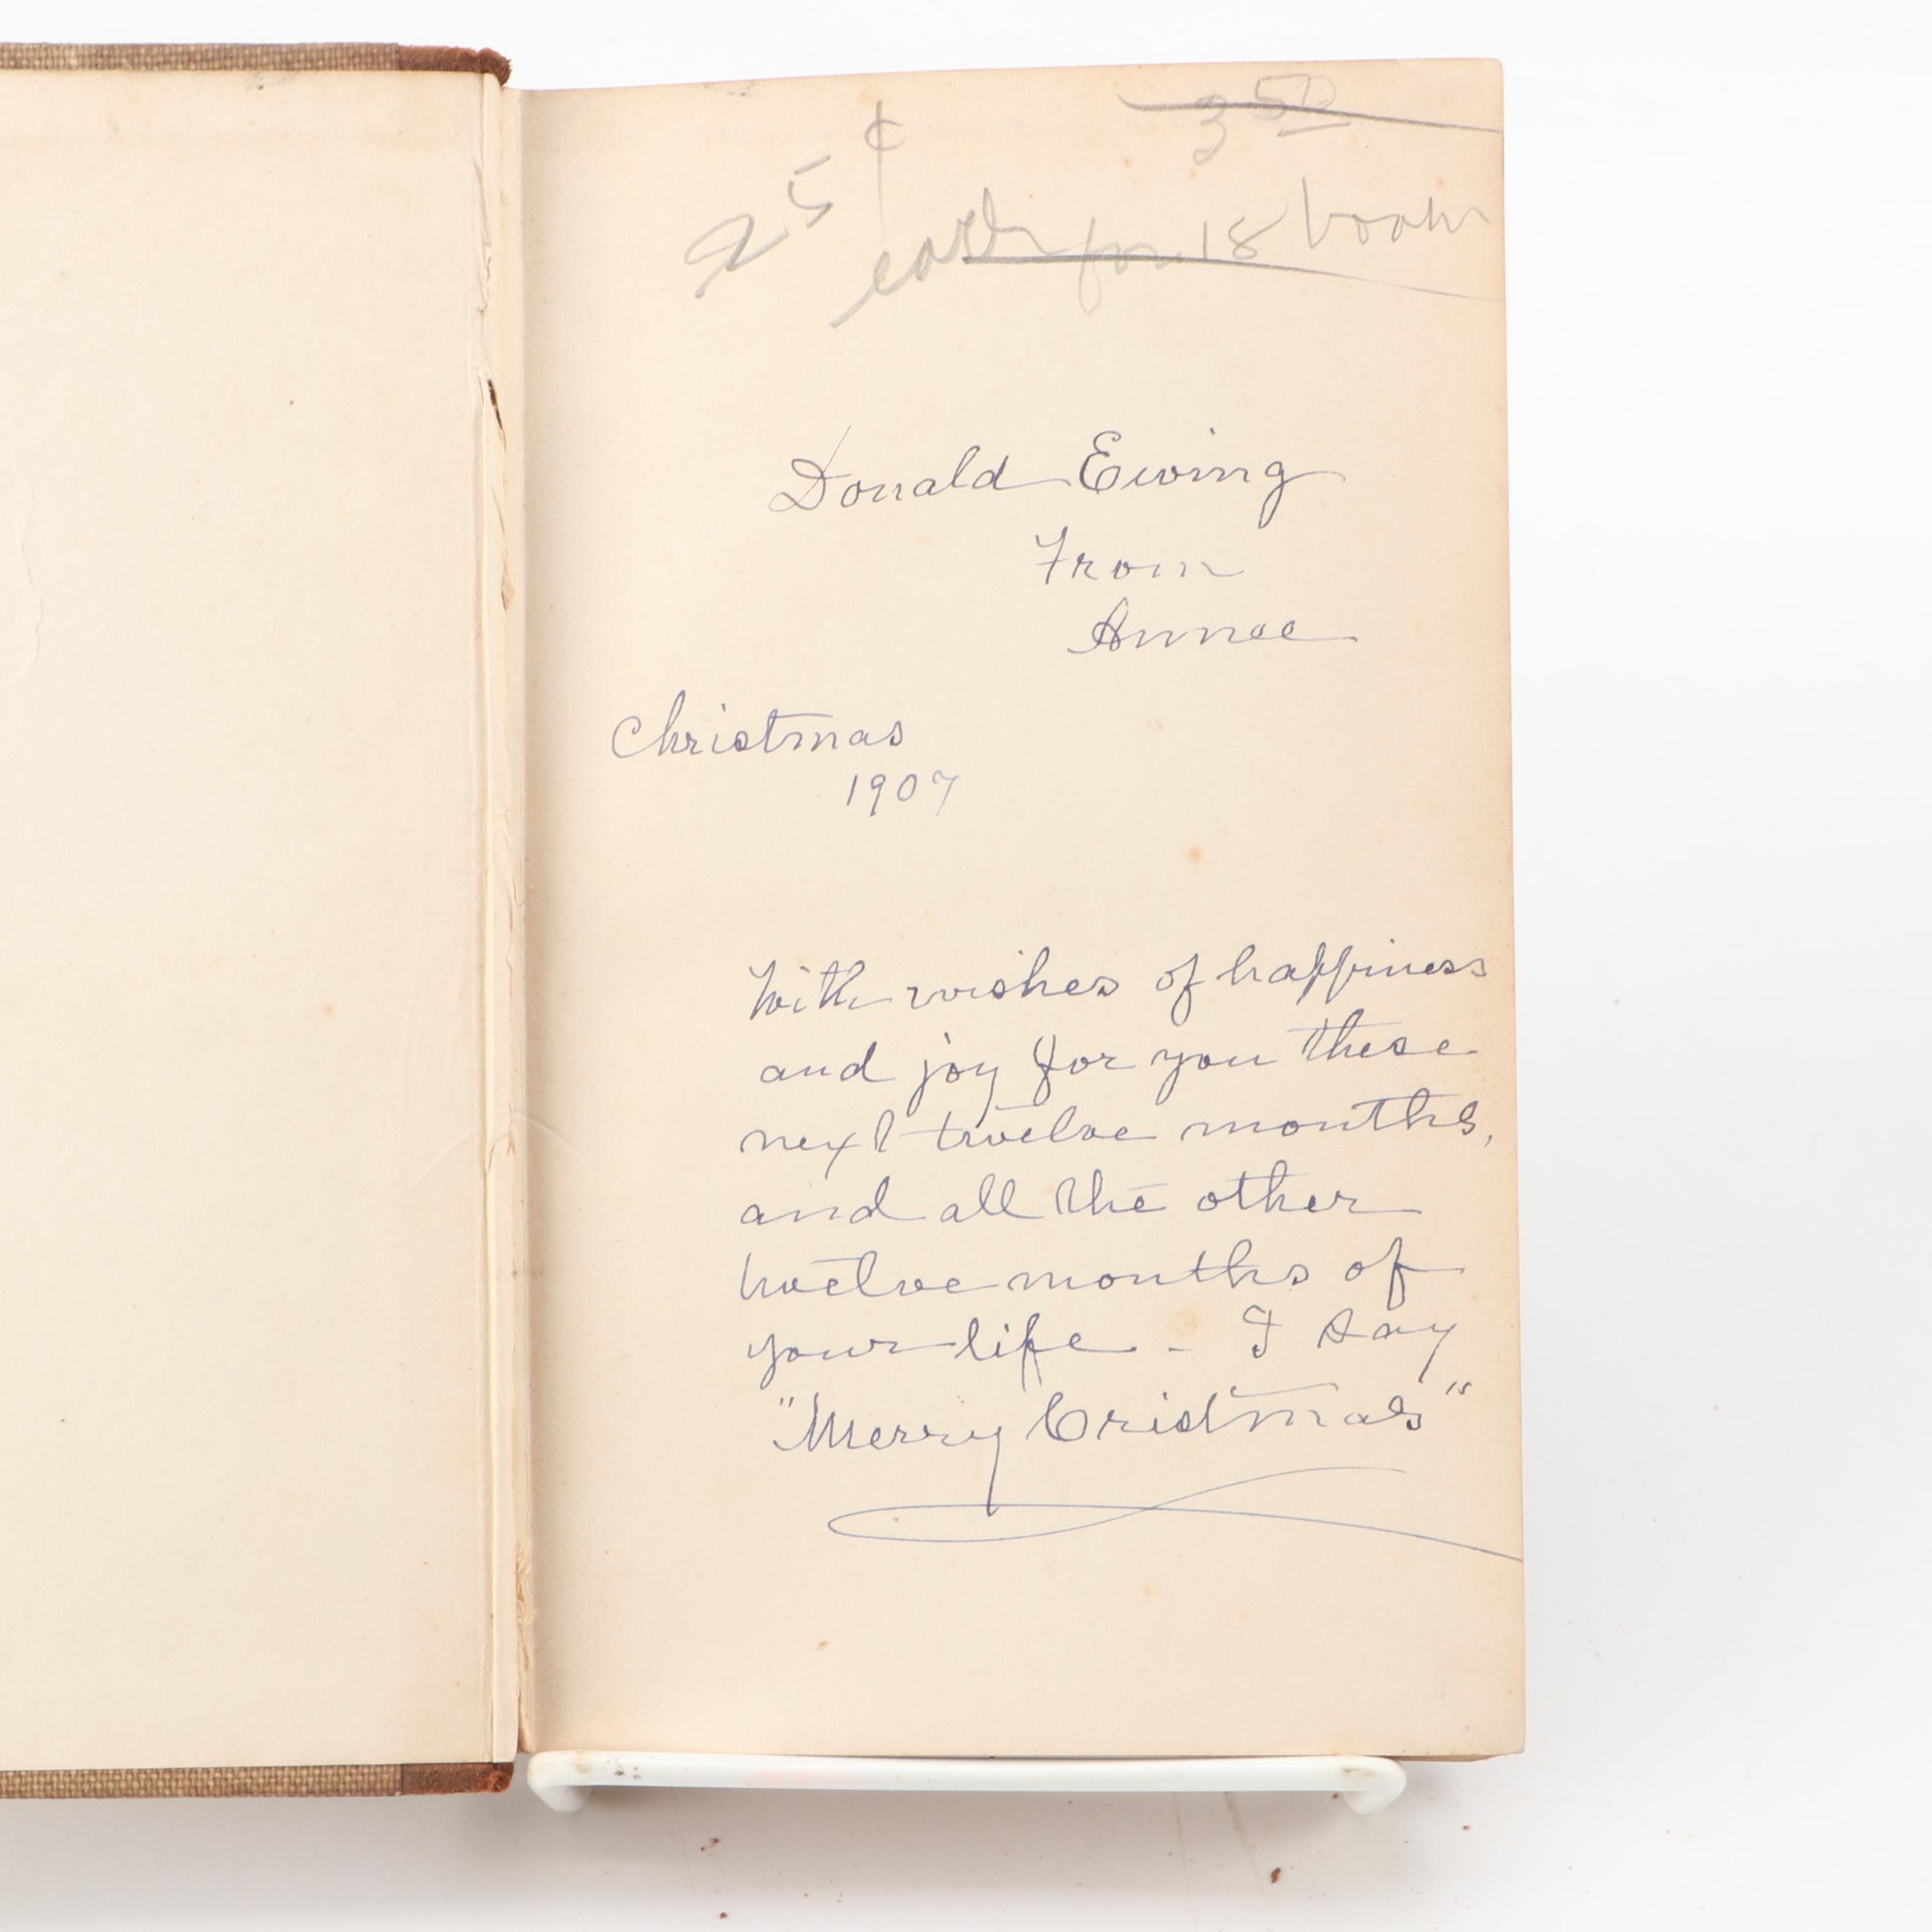 3 50
25 ¢
each for 18 books
Donald Ewing
From
Annee
Christmas
1907
With wishes of happiness
and joy for you these
next twelve months,
and all the other
twelve months of
your life - I say
"Merry Cristmas"